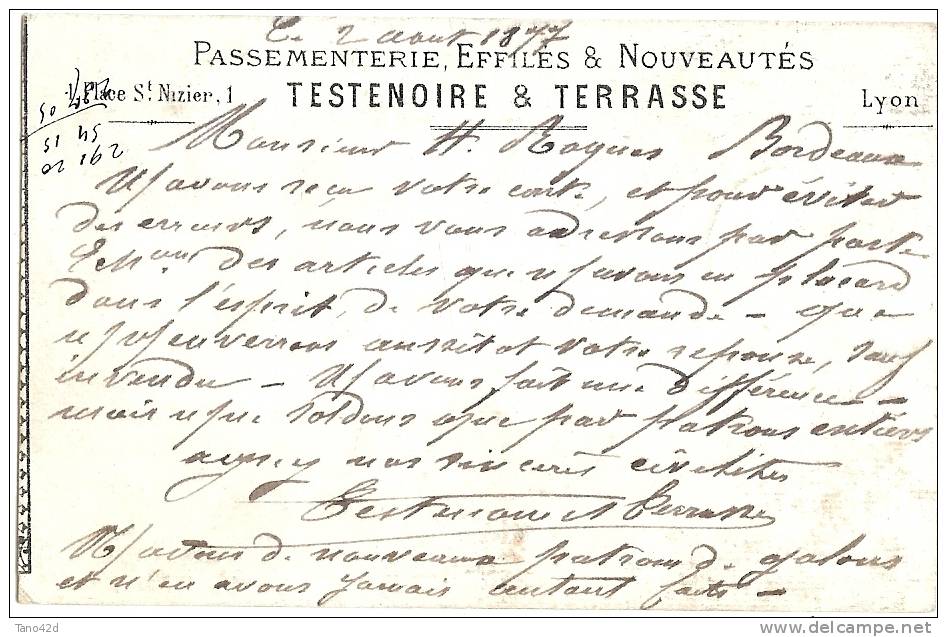 Le 2 aout 1877
PASSEMENTERIE, EFFILÉS & NOUVEAUTÉS
Place St. Nizier, 1 TESTENOIRE & TERRASSE Lyon
Monsieur H. Roques Bordeaux
avons reçu votre carte, et pour éviter
des erreurs, nous vous adressons par poste
Echons. des articles que n/ avons en placard
dans l'esprit, de votre demande – que
n/ v/ enverrons aussitot votre reponse, sauf
invendu – N/ avons fait une difference –
mais n/ ne soldons que par patrons entiers
agréez nos sinceres civilités
Testenoire et Terrasse
N/ avons de nouveaux patrons de galons
et n'en avons jamais autant faits –
Tano42d
delcampe.net